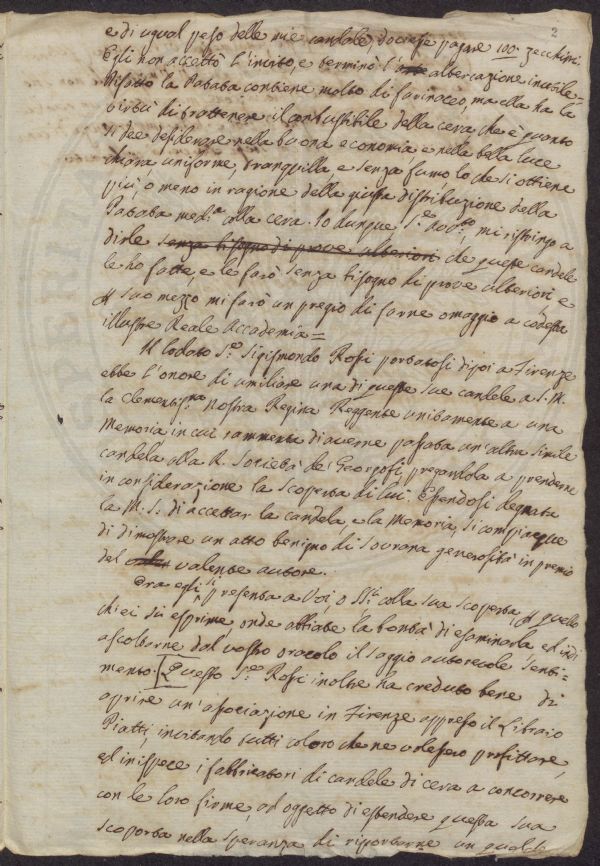 2
e di ugual peso delle mie candele, dovesse pagare 100. zecchini.
Egli non accettò l'invito, e terminò l' altercazione inutile.
Difatto la Patata contiene molto di farinaceo, ma ella ha la
virtù di trattenere il combustibile della cera che è quanto
si dee desiderare nella buona economia, e nella bella luce
chiara, uniforme, tranquilla, e senza fumo lo che si ottiene
più, o meno in ragione della giusta distribuzione della
Patata med.a alla cera. Io dunque mi ristringo a
dirle senza bisogno di prove ulteriori che queste candele
le ho fatte, e le farò senza bisogno di prove ulteriori e
p suo mezzo mi farò un pregio di farne omaggio a codesta
illustre Reale Accademia =
Il lodato S.r Sigismondo Rossi portatosi dipoi a Firenze
ebbe l'onore di umiliare una di queste sue candele a S. M.
la clementiss.ma Nostra Regina Reggente unitamente a una
Memoria in cui rammenta di averne passata un'altra simile
candela alla R. Società de' Georgofi, pregandola a prendere
in considerazione la scoperta di lui. Essendosi degnata
la M. S. di accettar la candela e la Memoria, si compiacque
di dimostrare un atto benigno di Sovrana generosità in premio
del valente autore.
Ora egli si presenta a Voi, o SS.i colla sua scoperta, p quello
ch'ei si esprime, onde abbiate la bontà di esaminarla ed indi
ascoltarne dal vostro oracolo il saggio autorevole senti=
mento. [Questo S.r Rossi inoltre ha creduto bene di
aprire un'associazione in Firenze appresso il Libraio
Piatti, invitando tutti coloro che ne volessero profittare,
ed in ispece i fabbricatori di candele di cera a concorrere
con le loro firme, ad oggetto di estendere questa sua
scoperta nella speranza di riportarne un qualche